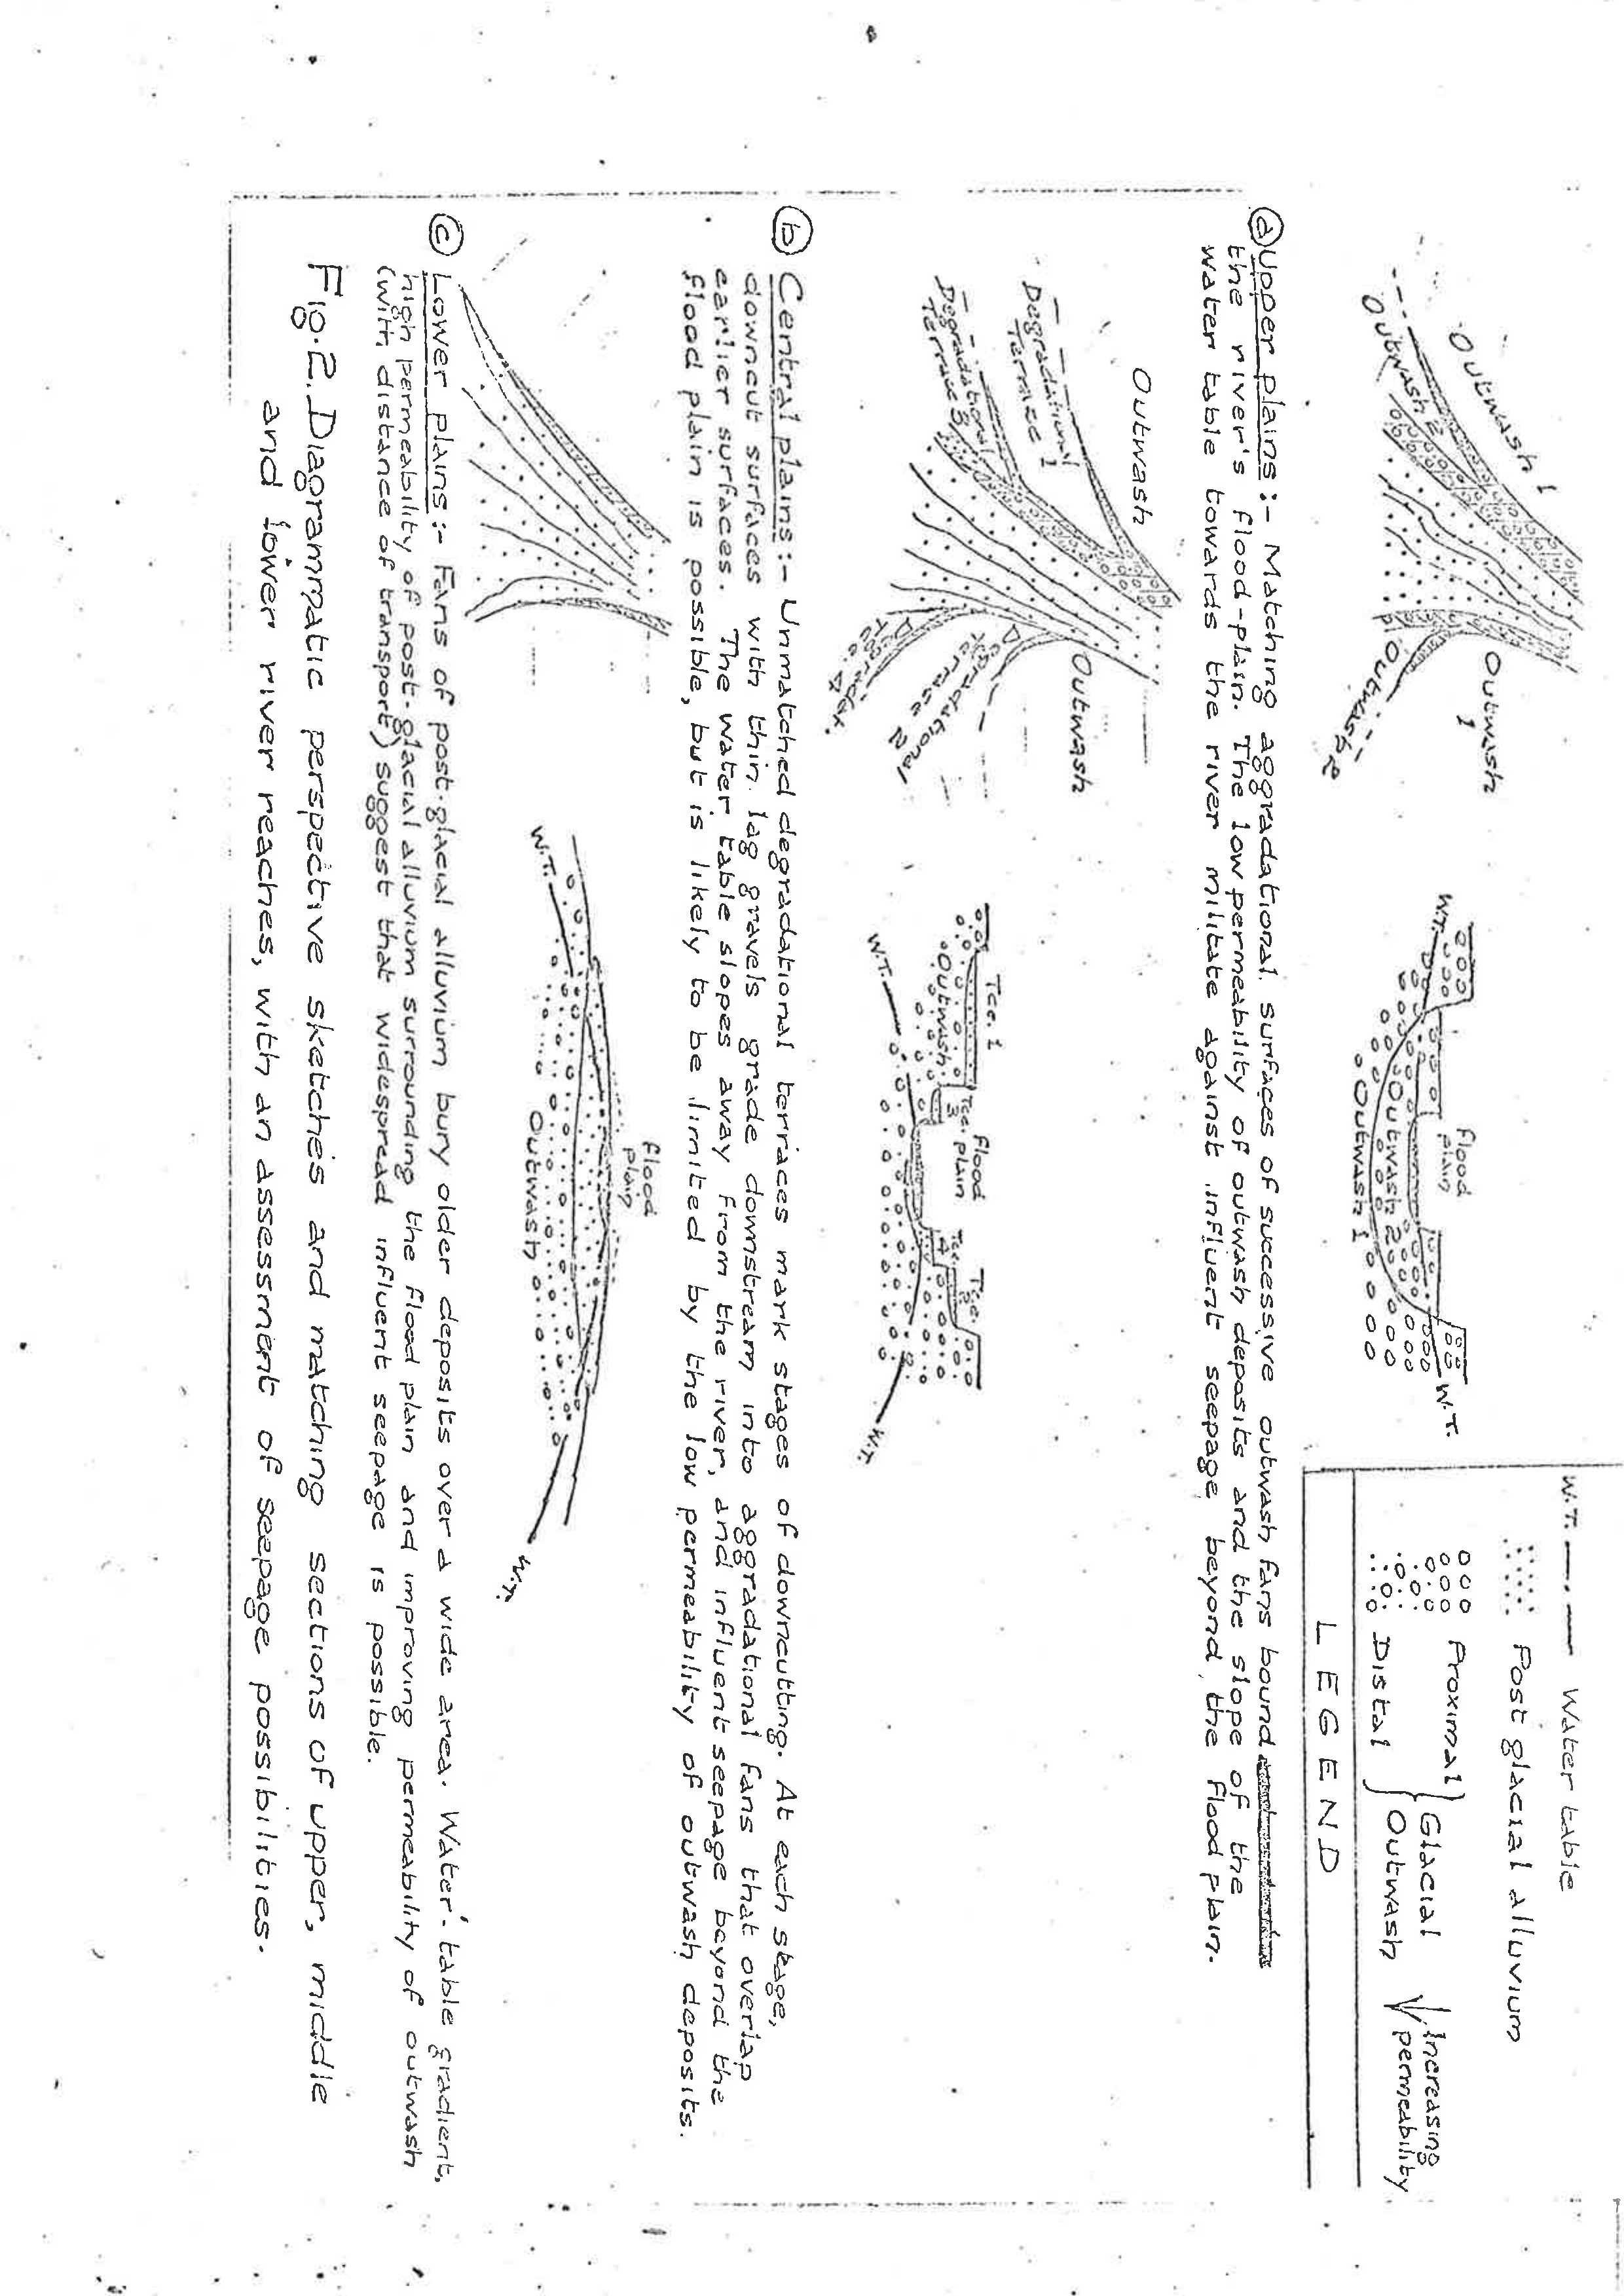 W.T. —·— Water table
Post glacial alluvium
Proximal } Glacial
Distal } Outwash
Increasing
permeability
LEGEND
Outwash 1
Outwash 2
Outwash
1
Outwash 2
W.T.
flood
plain
Outwash 2
Outwash 1
W.T.
(a) Upper plains:- Matching aggradational surfaces of successive outwash fans bound
the river's flood-plain. The low permeability of outwash deposits and the slope of the
water table towards the river militate against influent seepage beyond the flood plain.
Outwash
Degradational
Terrace 1
Degradational
Terrace 3
Outwash
Degradational
Terrace 2
Degradat.
Tce. 4
W.T.
Tce. 1
Outwash
Tce.
3
flood
plain
Tce.
4
Tce.
2
W.T.
(b) Central plains:- Unmatched degradational terraces mark stages of downcutting. At each stage,
downcut surfaces with thin lag gravels grade downstream into aggradational fans that overlap
earlier surfaces. The water table slopes away from the river, and influent seepage beyond the
flood plain is possible, but is likely to be limited by the low permeability of outwash deposits.
W.T.
flood
plain
Outwash
W.T.
(c) Lower plains:- Fans of post-glacial alluvium bury older deposits over a wide area. Water table gradient,
high permeability of post-glacial alluvium surrounding the flood plain and improving permeability of outwash
(with distance of transport) suggest that widespread influent seepage is possible.
Fig. 2. Diagrammatic perspective sketches and matching sections of upper, middle
and lower river reaches, with an assessment of seepage possibilities.